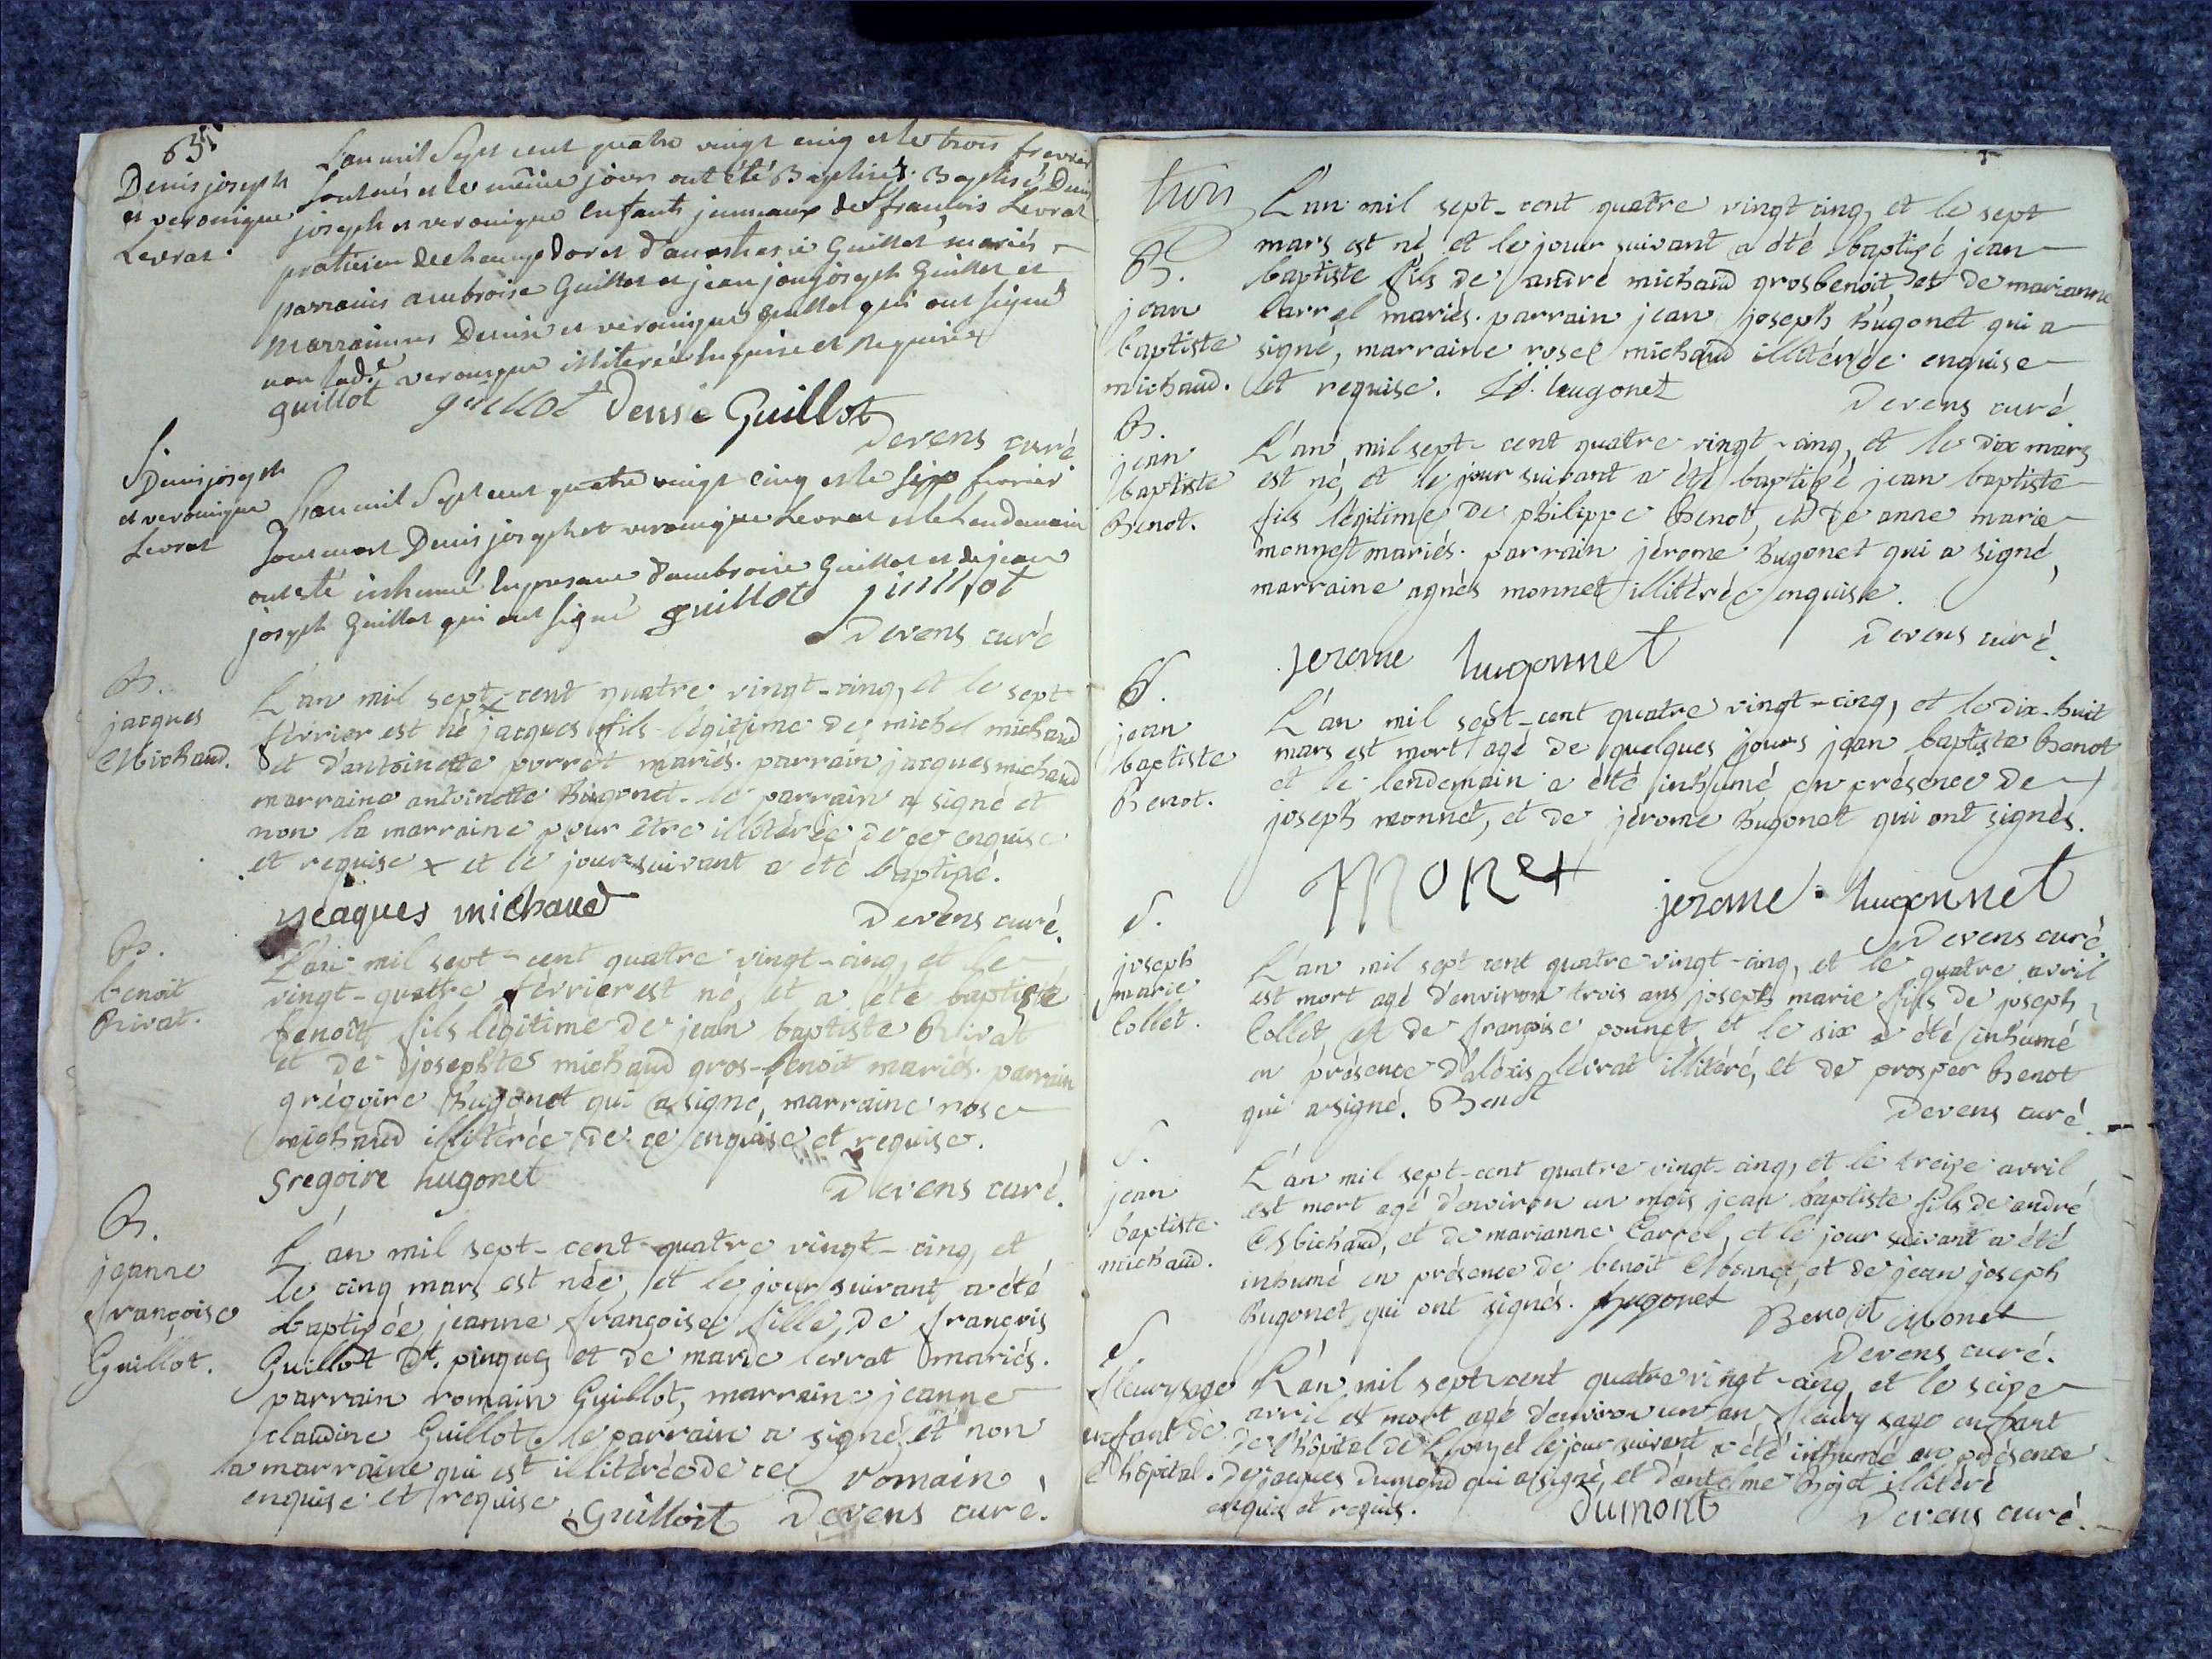 65
Denis joseph
et veronique
Levrat.
L'an mil Sept cent quatre vingt cinq et le trois fevrier
sont nés et le même jour ont été Baptisés. Baptisé Denis
joseph et veronique Enfants jumeaux de françois Levrat
praticien de champdor et d'anasthasie Guillot mariés
parrains ambroise Guillot et jean joseph Guillot et
Marraines Denise et veronique guillot qui ont signé
non lad.e veronique illiterée Enquise et Requise
guillot guillot Denise Guillot
Devens curé
S
Denis joseph
et veronique
Levrat
L'an mil Sept cent quatre vingt cinq et le six fevrier
sont mort Denis joseph et veronique Levrat et le Lendemain
ont été inhumé En presance d'ambroise Guillot et de jean
joseph Guillot qui ont signé guillot guillot
Devens curé
B.
jacques
Michaud.
L'an mil sept-cent quatre vingt-cinq, et le sept
février est né x jacques fils légitime de michel michaud
et d'antoinette perrot mariés. parrain jacques michaud
marraine antoinette Hugonet. le parrain a signé et
non la marraine pour être illitérée de ce enquise
et requise x et le jour suivant a été baptizé.
jeaques michaud
Devens curé.
B.
benoit
Rivat.
L'an mil sept-cent quatre vingt-cinq, et le
vingt-quatre février est né, et a été baptisté
benoit fils légitime de jean baptiste Rivat
et de josephte michaud gros-benoit mariés. parrain
grégoire Hugonet qui a signé, marraine rose
michaud illitérée de ce enquise et requise.
Gregoire hugonet
Devens curé.
B.
jeanne
françoise
Guillot.
L'an mil sept-cent quatre vingt-cinq, et
le cinq mars est née, et le jour suivant a été
baptizée jeanne françoise fille de françois
Guillot dt. pinque et de marie levrat mariés.
parrain romain Guillot, marraine jeanne
claudine Guillot. le parrain a signé, et non
la marraine qui est illitérée de ce
enquise et requise romain
Guilloit Devens curé.
trois
B.
jean
baptiste
michaud.
L'an mil sept-cent quatre vingt cinq, et le sept
mars est né, et le jour suivant a été baptizé jean
baptiste fils de andré michaud grosbenoit, et de marianne
Carrel mariés. parrain jean joseph Hugonet qui a
signé, marraine rose michaud illitérée enquise
et requise. J.J. hugonet
Devens curé
B.
jean
baptiste
Benot.
L'an mil sept-cent quatre vingt-cinq, et le dix mars
est né, et le jour suivant a été baptizé jean baptiste
fils légitime de philippe Benot, et de anne marie
monnet mariés. parrain jérome Hugonet qui a signé,
marraine agnès monnet illitérée enquise.
Devens curé.
jerome hugonnet
S.
jean
baptiste
Benot.
L'an mil sept-cent quatre vingt-cinq, et le dix-huit
mars est mort agé de quelques jours jean baptiste Benot
et le lendemain a été inhumé en présence de
joseph monnet, et de jérome Hugonet qui ont signés.
Monet jerome hugonnet
Devens curé.
S.
joseph
marie
Collet.
L'an mil sept cent quatre vingt-cinq, et le quatre avril
est mort agé d'environ trois ans joseph marie fils de joseph
Collet et de françoise ponnet, et le six a été inhumé
en présence d'aléxis levrat illitéré, et de prosper Benot
qui a signé. Benot
Devens curé
S.
jean
baptiste
michaud.
L'an mil sept-cent quatre vingt-cinq, et le treize avril
est mort agé d'environ un mois jean baptiste fils de andré
Michaud, et de marianne Carrel, et le jour suivant a été
inhumé en présence de benoit Monnet, et de jean joseph
Hugonet qui ont signés. hugonet Benoit Monet
Devens curé.
S
fleury sage
enfant de
l'hôpital.
L'an mil sept cent quatre vingt-cinq, et le seize
avril est mort agé d'environ un an, fleury sage enfant
de l'hôpital de Lyon, et le jour suivant a été inhumé en présence
de jacques dumond qui a signé, et d'antelme Bojot illitéré
enquis et requis. dumont
Devens curé.